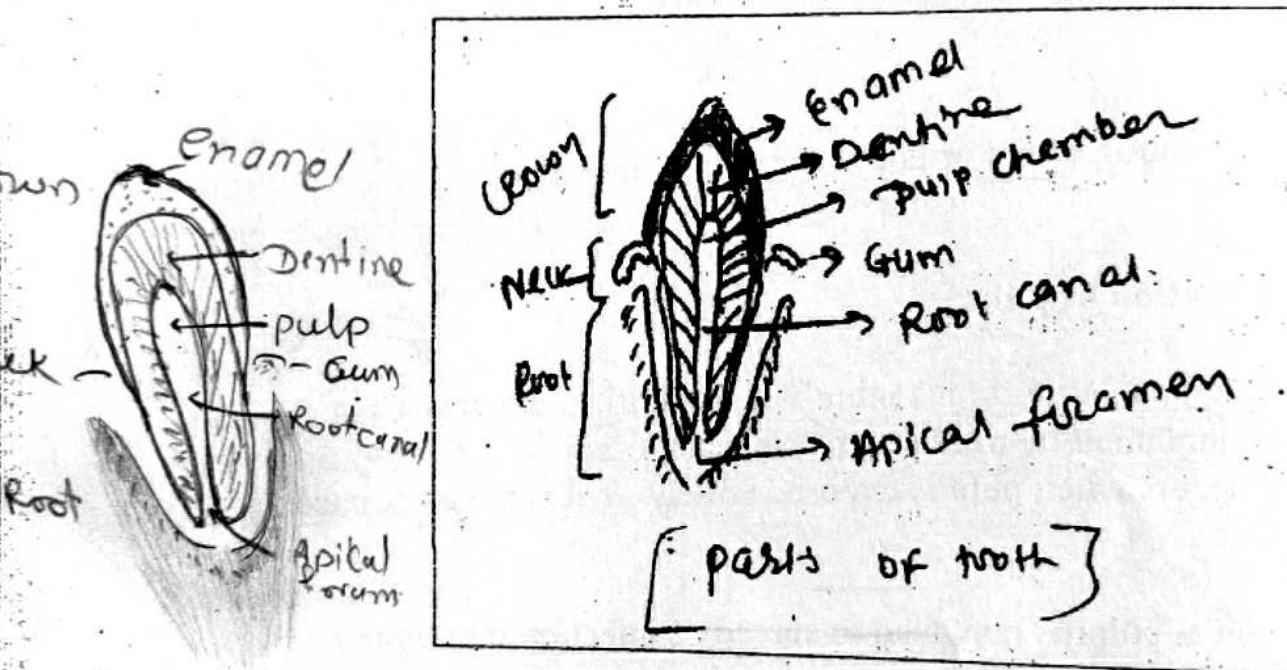 Enamel
Dentine
pulp
Gum
Root canal
Root
Apical
Crown
Neck
Root
Enamel
Dentine
pulp chember
Gum
Root canal.
Apical foramen
[parts of tooth}